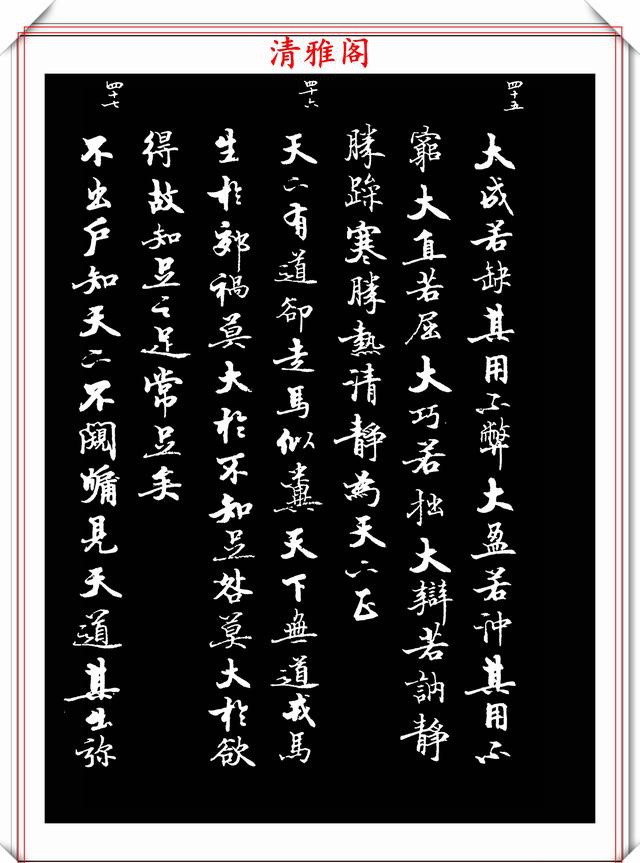 清雅阁
四十五
大成若缺其用不弊大盈若冲其用不
窮大直若屈大巧若拙大辯若訥靜
勝躁寒勝熱清靜為天下正
四十六
天下有道卻走馬似糞天下無道戎馬
生於郊禍莫大於不知足咎莫大於欲
得故知足之足常足矣
四十七
不出戶知天下不闚牖見天道其出弥